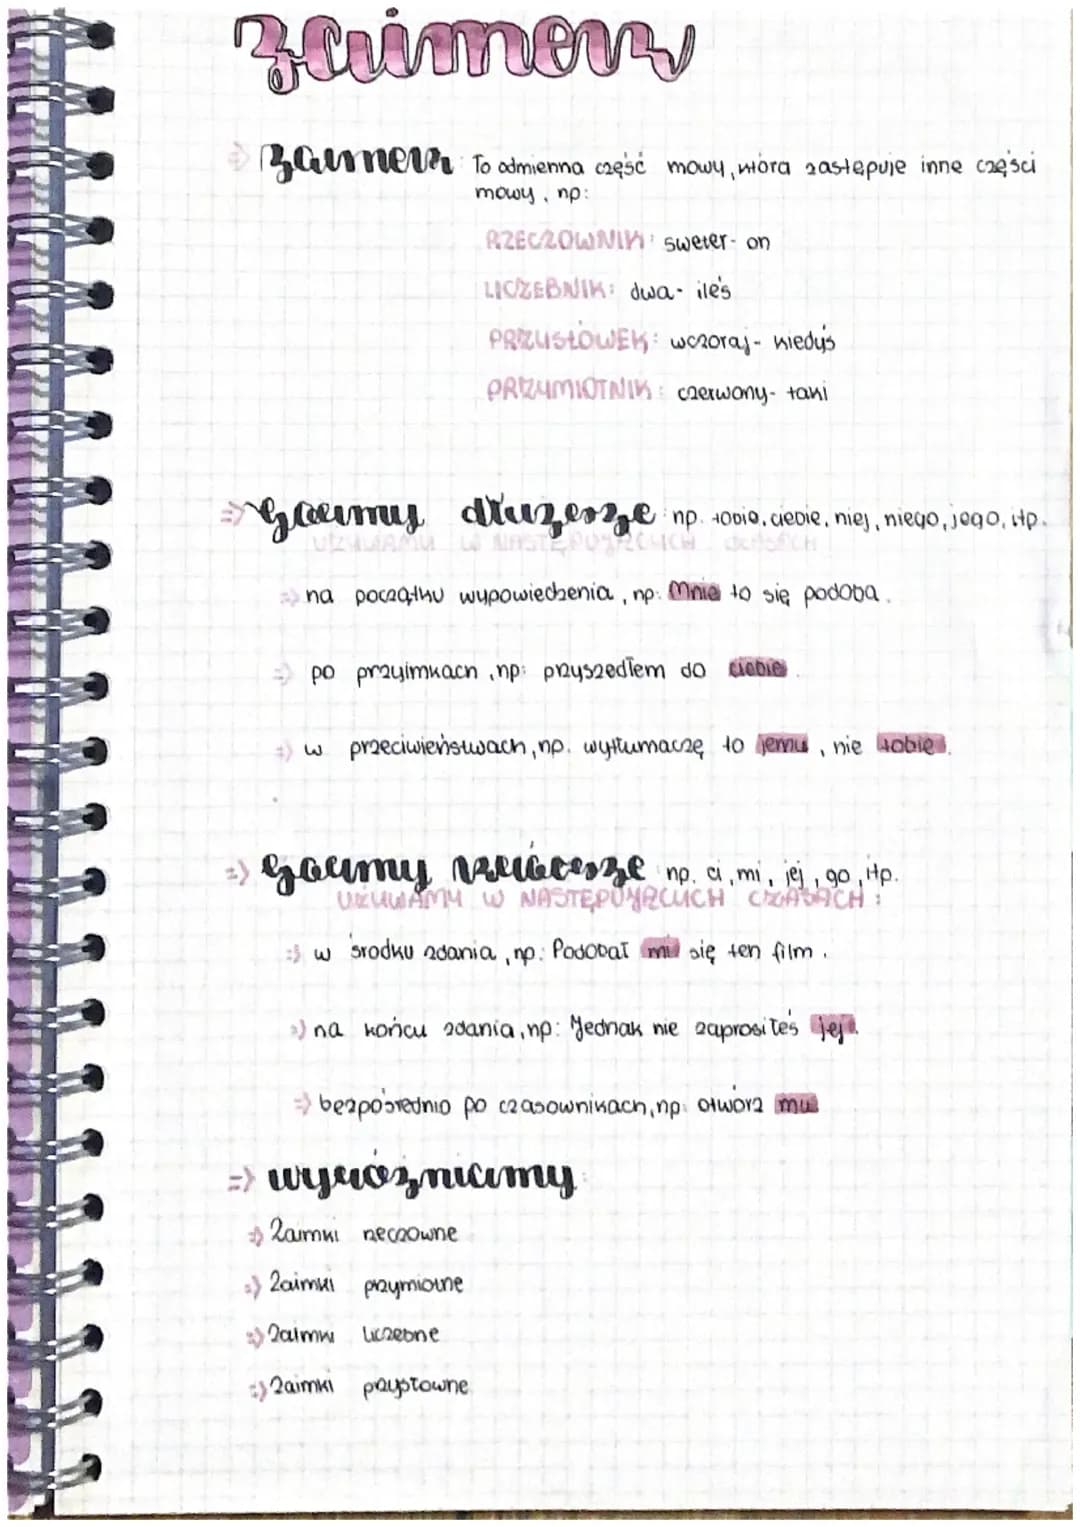 zaimek
=> zaimek: To odmienna część mowy, która zastępuje inne części
mowy, np:
RZECZOWNIK: sweter- on
LICZEBNIK: dwa- ileś
PRZYSŁÓWEK: wczoraj- kiedyś
PRZYMIOTNIK: czerwony- taki
=> formy dłuższe np. tobie, ciebie, niej, niego, jego, itp.
UŻYWAMY W NASTĘPUJĄCYCH CZASACH
=> na początku wypowiedzenia, np: Mnie to się podoba.
=> po przyimkach, np: przyszedłem do ciebie.
=> w przeciwieństwach, np. wytłumaczę to jemu, nie tobie.
=> formy krótsze np. ci, mi, jej, go, itp.
UŻYWAMY W NASTĘPUJĄCYCH CZASACH:
=> w środku zdania, np: Podobał mi się ten film.
=> na końcu zdania, np: Jednak nie zaprosiłeś jej.
=> bezpośrednio po czasownikach, np: otwórz mu
=> wyróżniamy:
=> Zaimki rzeczowne
=> Zaimki przymiotne
=> Zaimki liczebne
=> Zaimki przysłowne